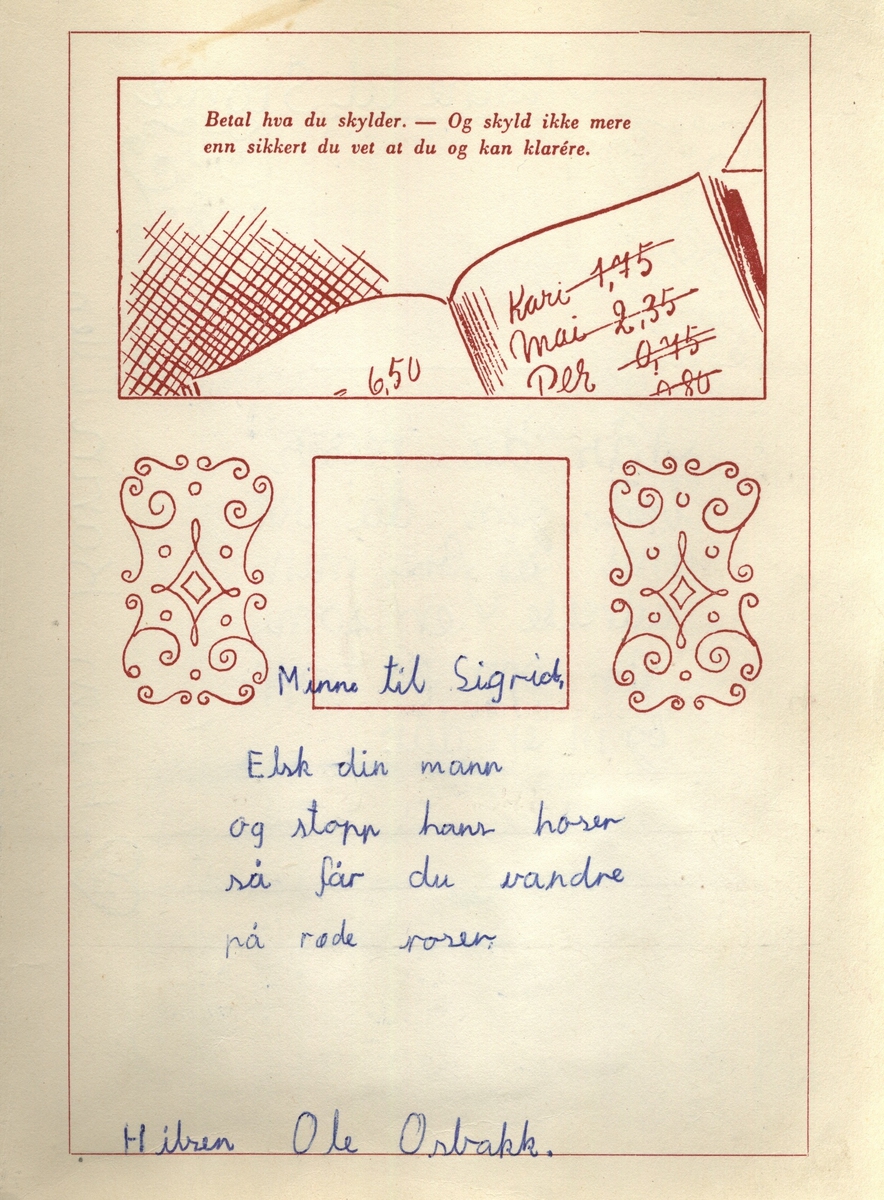 Betal hva du skylder. — Og skyld ikke mere
enn sikkert du vet at du og kan klarére.
Kari 1,75
Mai 2,35
Per 0,75
0,80
= 6,50
Minne til Sigrid,
Elsk din mann
og stopp hans hoser
så får du vandre
på røde roser.
Hilsen Ole Osbakk.